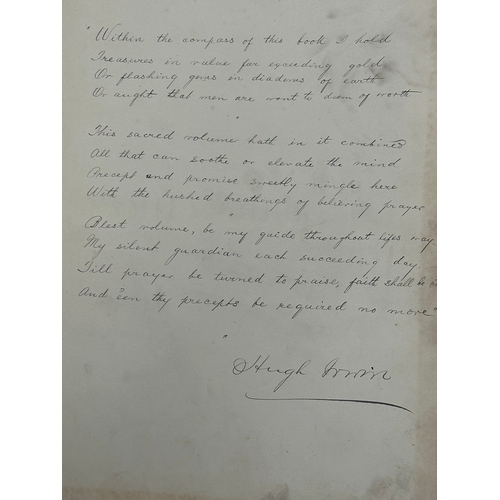 "Within the compass of this book I hold
Treasures in value far exceeding gold
Or flashing gems in diadems of earth
Or aught that men are wont to deem of worth
"
This sacred volume hath in it combined
All that can soothe or elevate the mind
Precept and promise sweetly mingle here
With the hushed breathings of believing prayer
"
Blest volume, be my guide throughout lifes way
My silent guardian each succeeding day
Till prayer be turned to praise, faith shall be
And e'en thy precepts be required no more"
"
Hugh Irwin